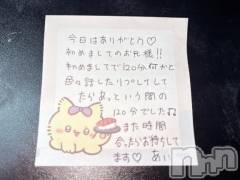 今日はありがとう♡
初めましてのお兄様!!
初めましてで120分、何かと
色々話したりプレしてして
たらあっという間の
120分でした♫
また時間
合ったらお待ちして
ます♡ あい